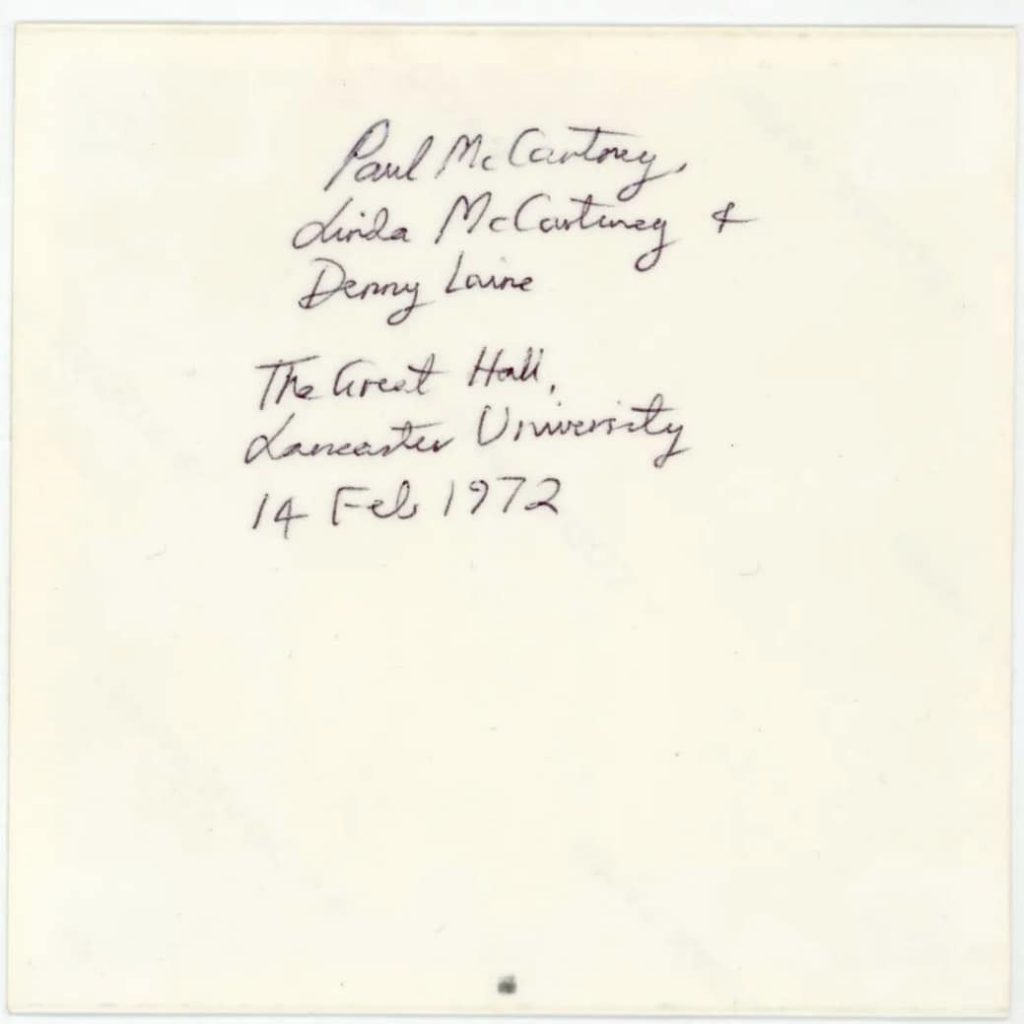 Paul McCartney,
Linda McCartney &
Denny Laine
The Great Hall,
Lancaster University
14 Feb 1972